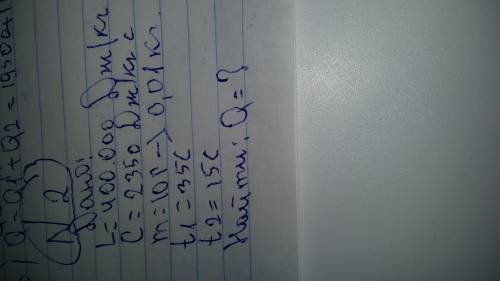 Q=Q1+Q2=1950
(N2)
Дано:
L=400.000 Дж/кг
C=2350 Дж/кг с
m=10г→0,01кг.
t1=35C
t2=15C
Найти: Q=?